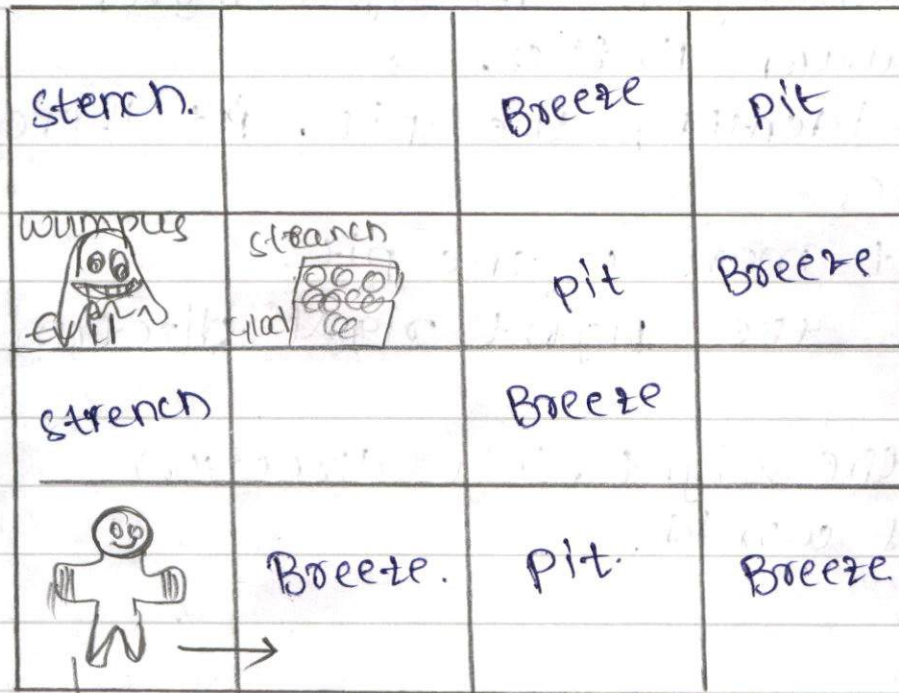 stench.
Breeze
pit
wumpus
Evil
streanch
Glod
pit
Breeze
strench
Breeze
Breeze.
pit.
Breeze